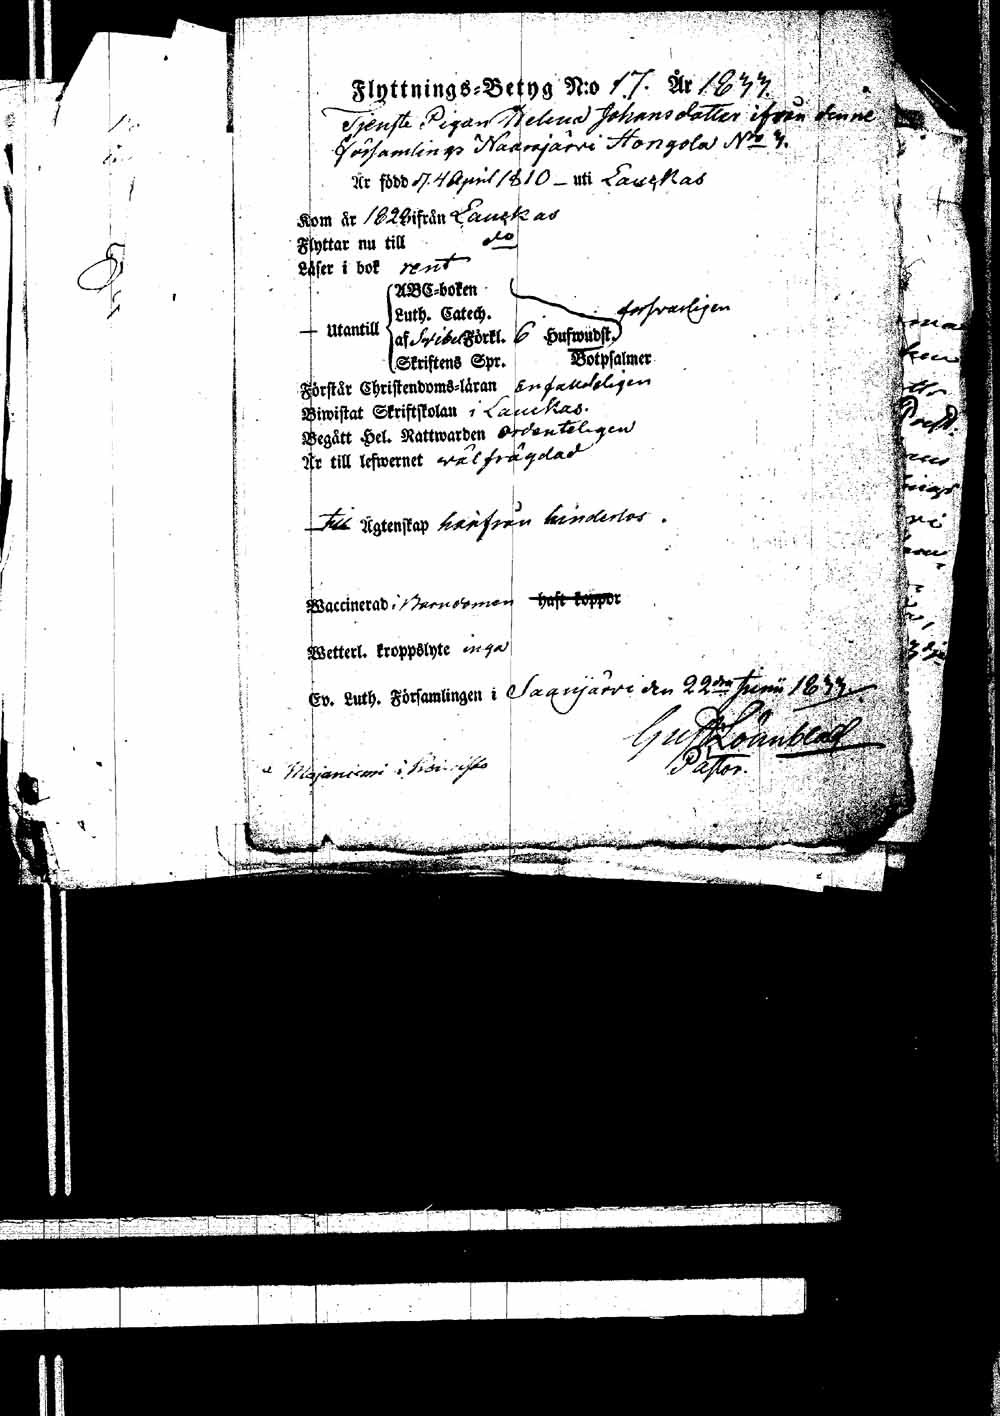 Flyttnings-Betyg N:o 17. År 1833.
Tjenste Pigan Helena Johansdotter ifrån denne
församlings Naarajärvi Hongola No 3.
Är född d. 4 April 1810 – uti Laukas
Kom år 1828 ifrån Laukas
Flyttar nu till do
Läser i bok rent
— Utantill
ABC-boken
Luth. Catech. försvarligen
af Svibel. Förkl. 6 Hufwudst.
Skriftens Spr. Botpsalmer
Förstår Christendoms-läran enfaldeligen
Biwistat Skriftskolan i Laukas.
Begått Hel. Nattwarden ordenteligen
Är till lefwernet wälfrägdad
till Ägtenskap härifrån hinderlös.
Waccinerad i Barndomen haft koppor
Wetterl. kroppslyte inga
Ev. Luth. Församlingen i Saarijärvi den 22dra Junii 1833.
Gust. Lönnblad
Pastor.